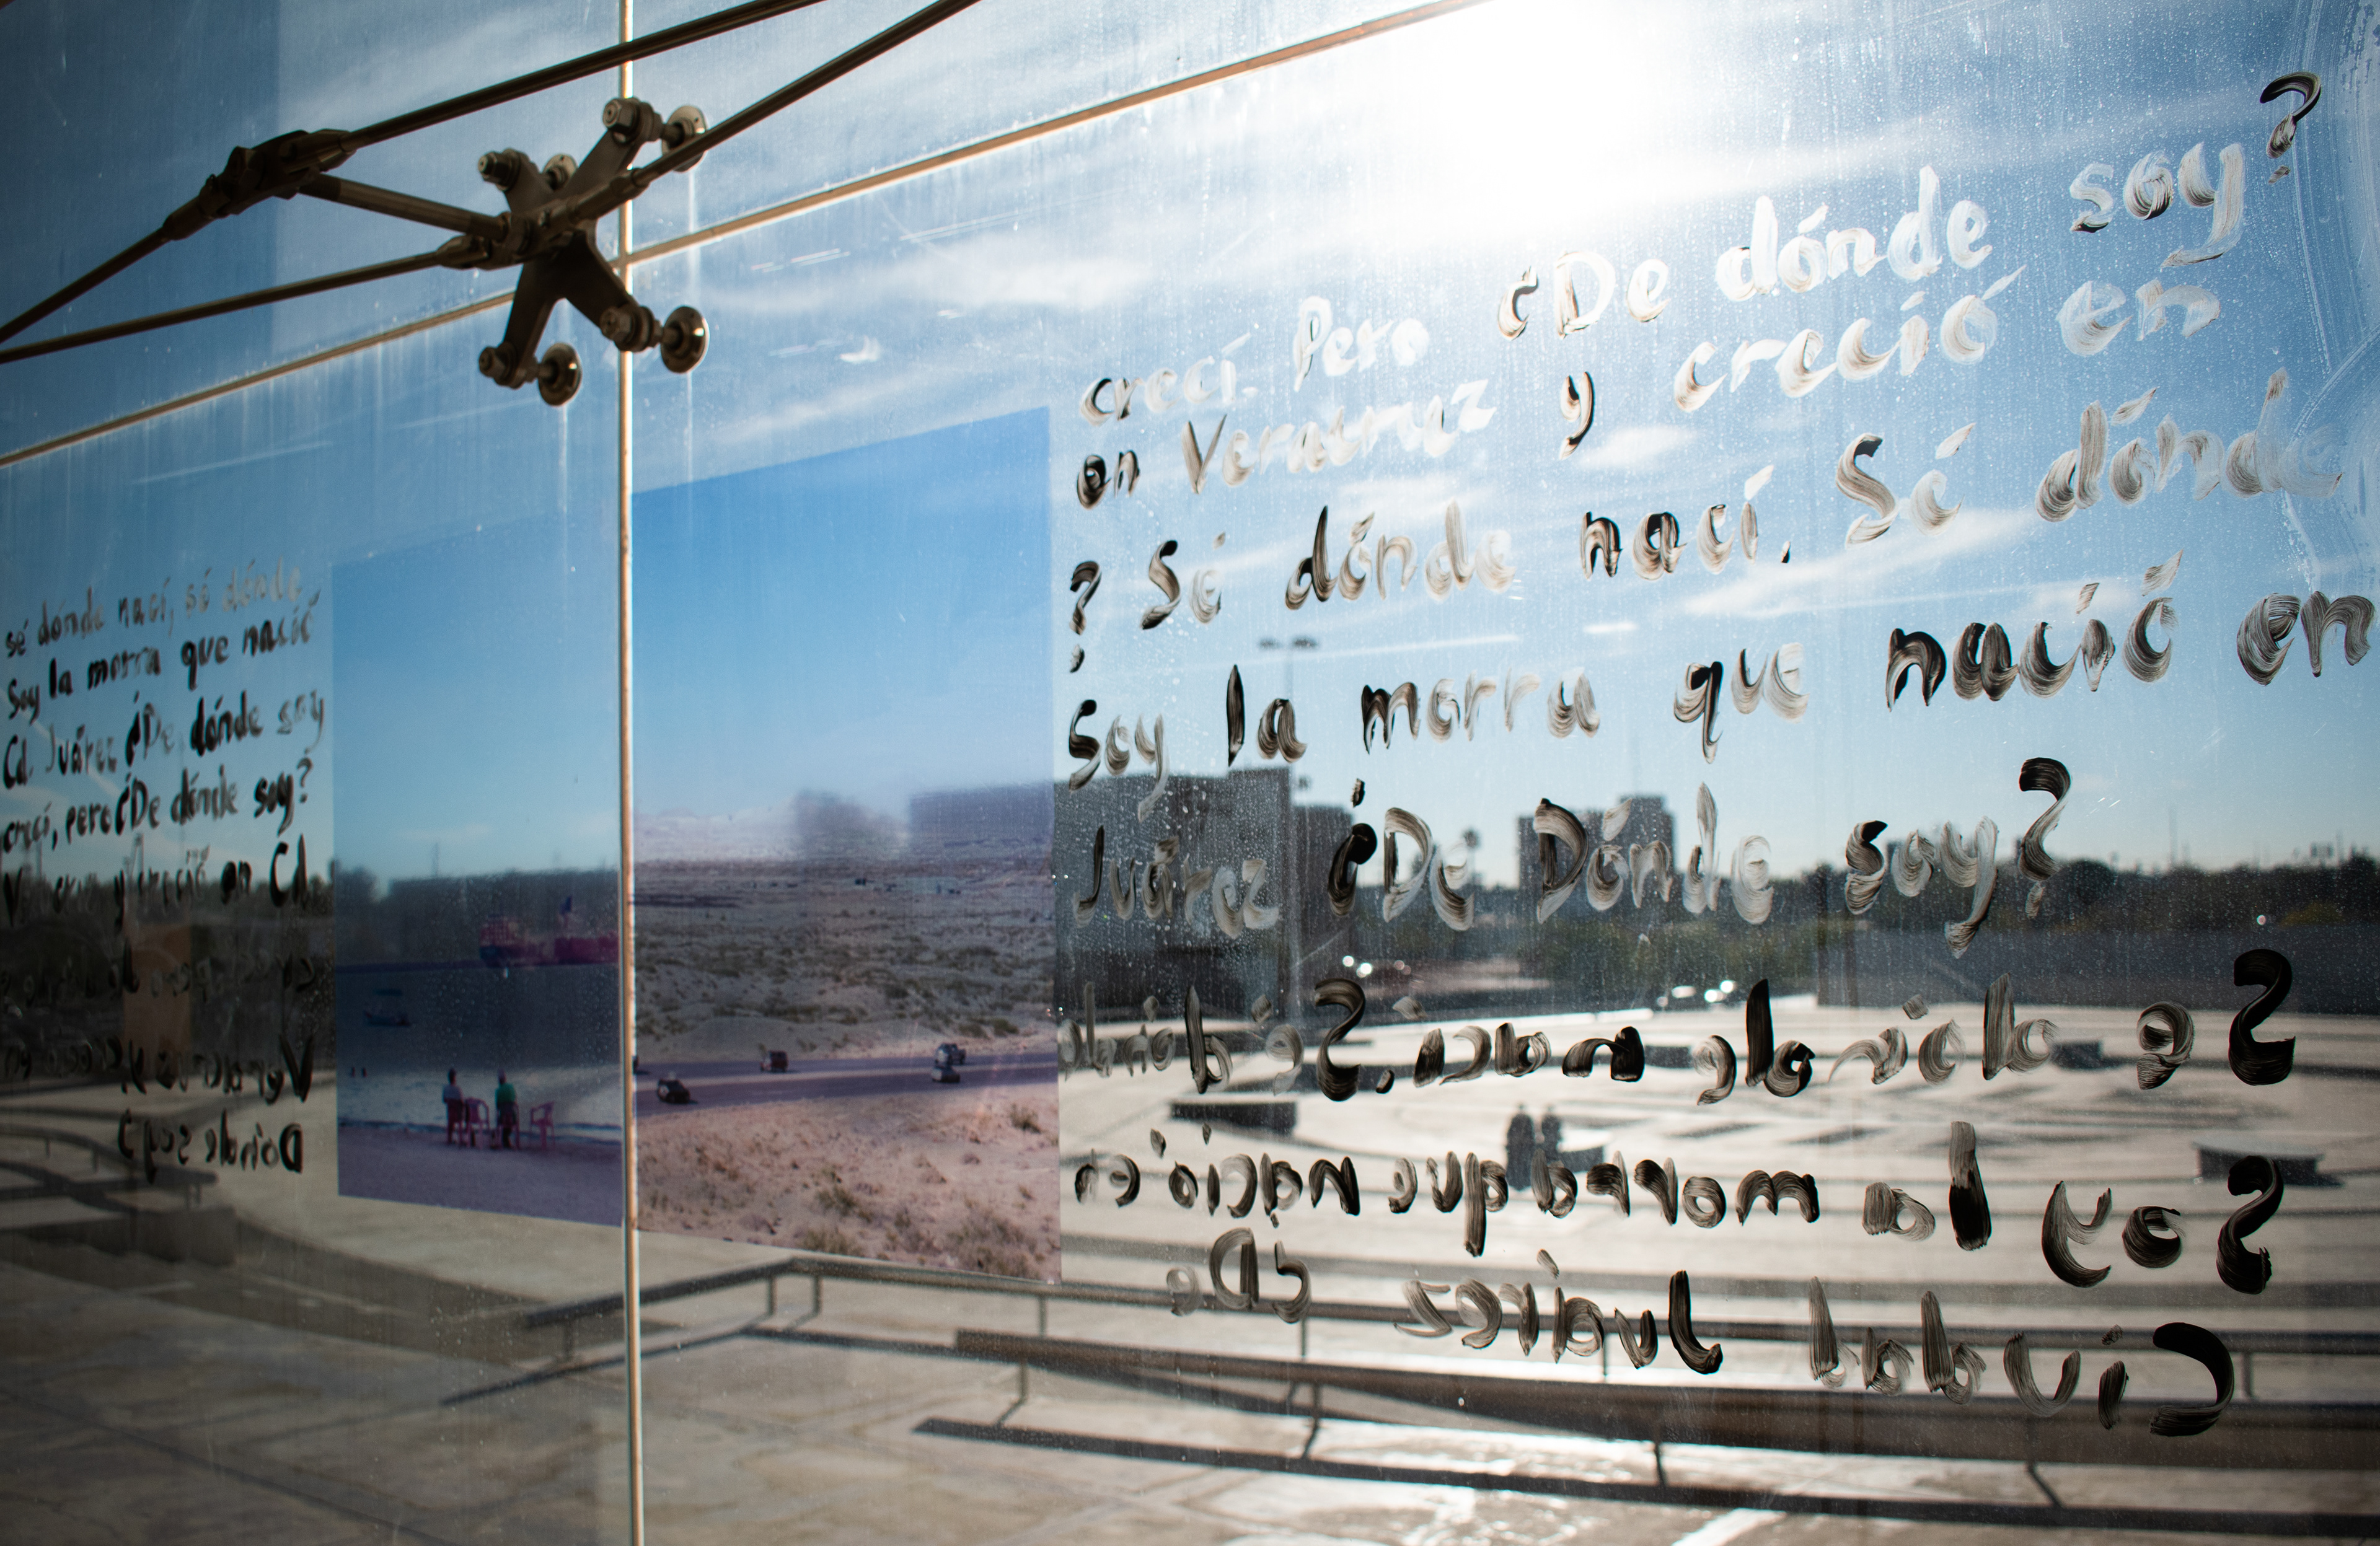 sé dónde nací, sé dónde
Soy la morra que nació
Cd. Juárez ¿De dónde soy
crecí, pero ¿De dónde soy?
y creció en Cd.
Veracruz y creció en
Dónde soy?
crecí. Pero ¿De dónde soy?
en Veracruz y creció en
? Sé dónde nací. Sé dónde
Soy la morra que nació en
Juárez ¿De Dónde soy?
Sé dónde nací. Sé dónde
Soy la morra que nació en
Ciudad Juárez ¿De